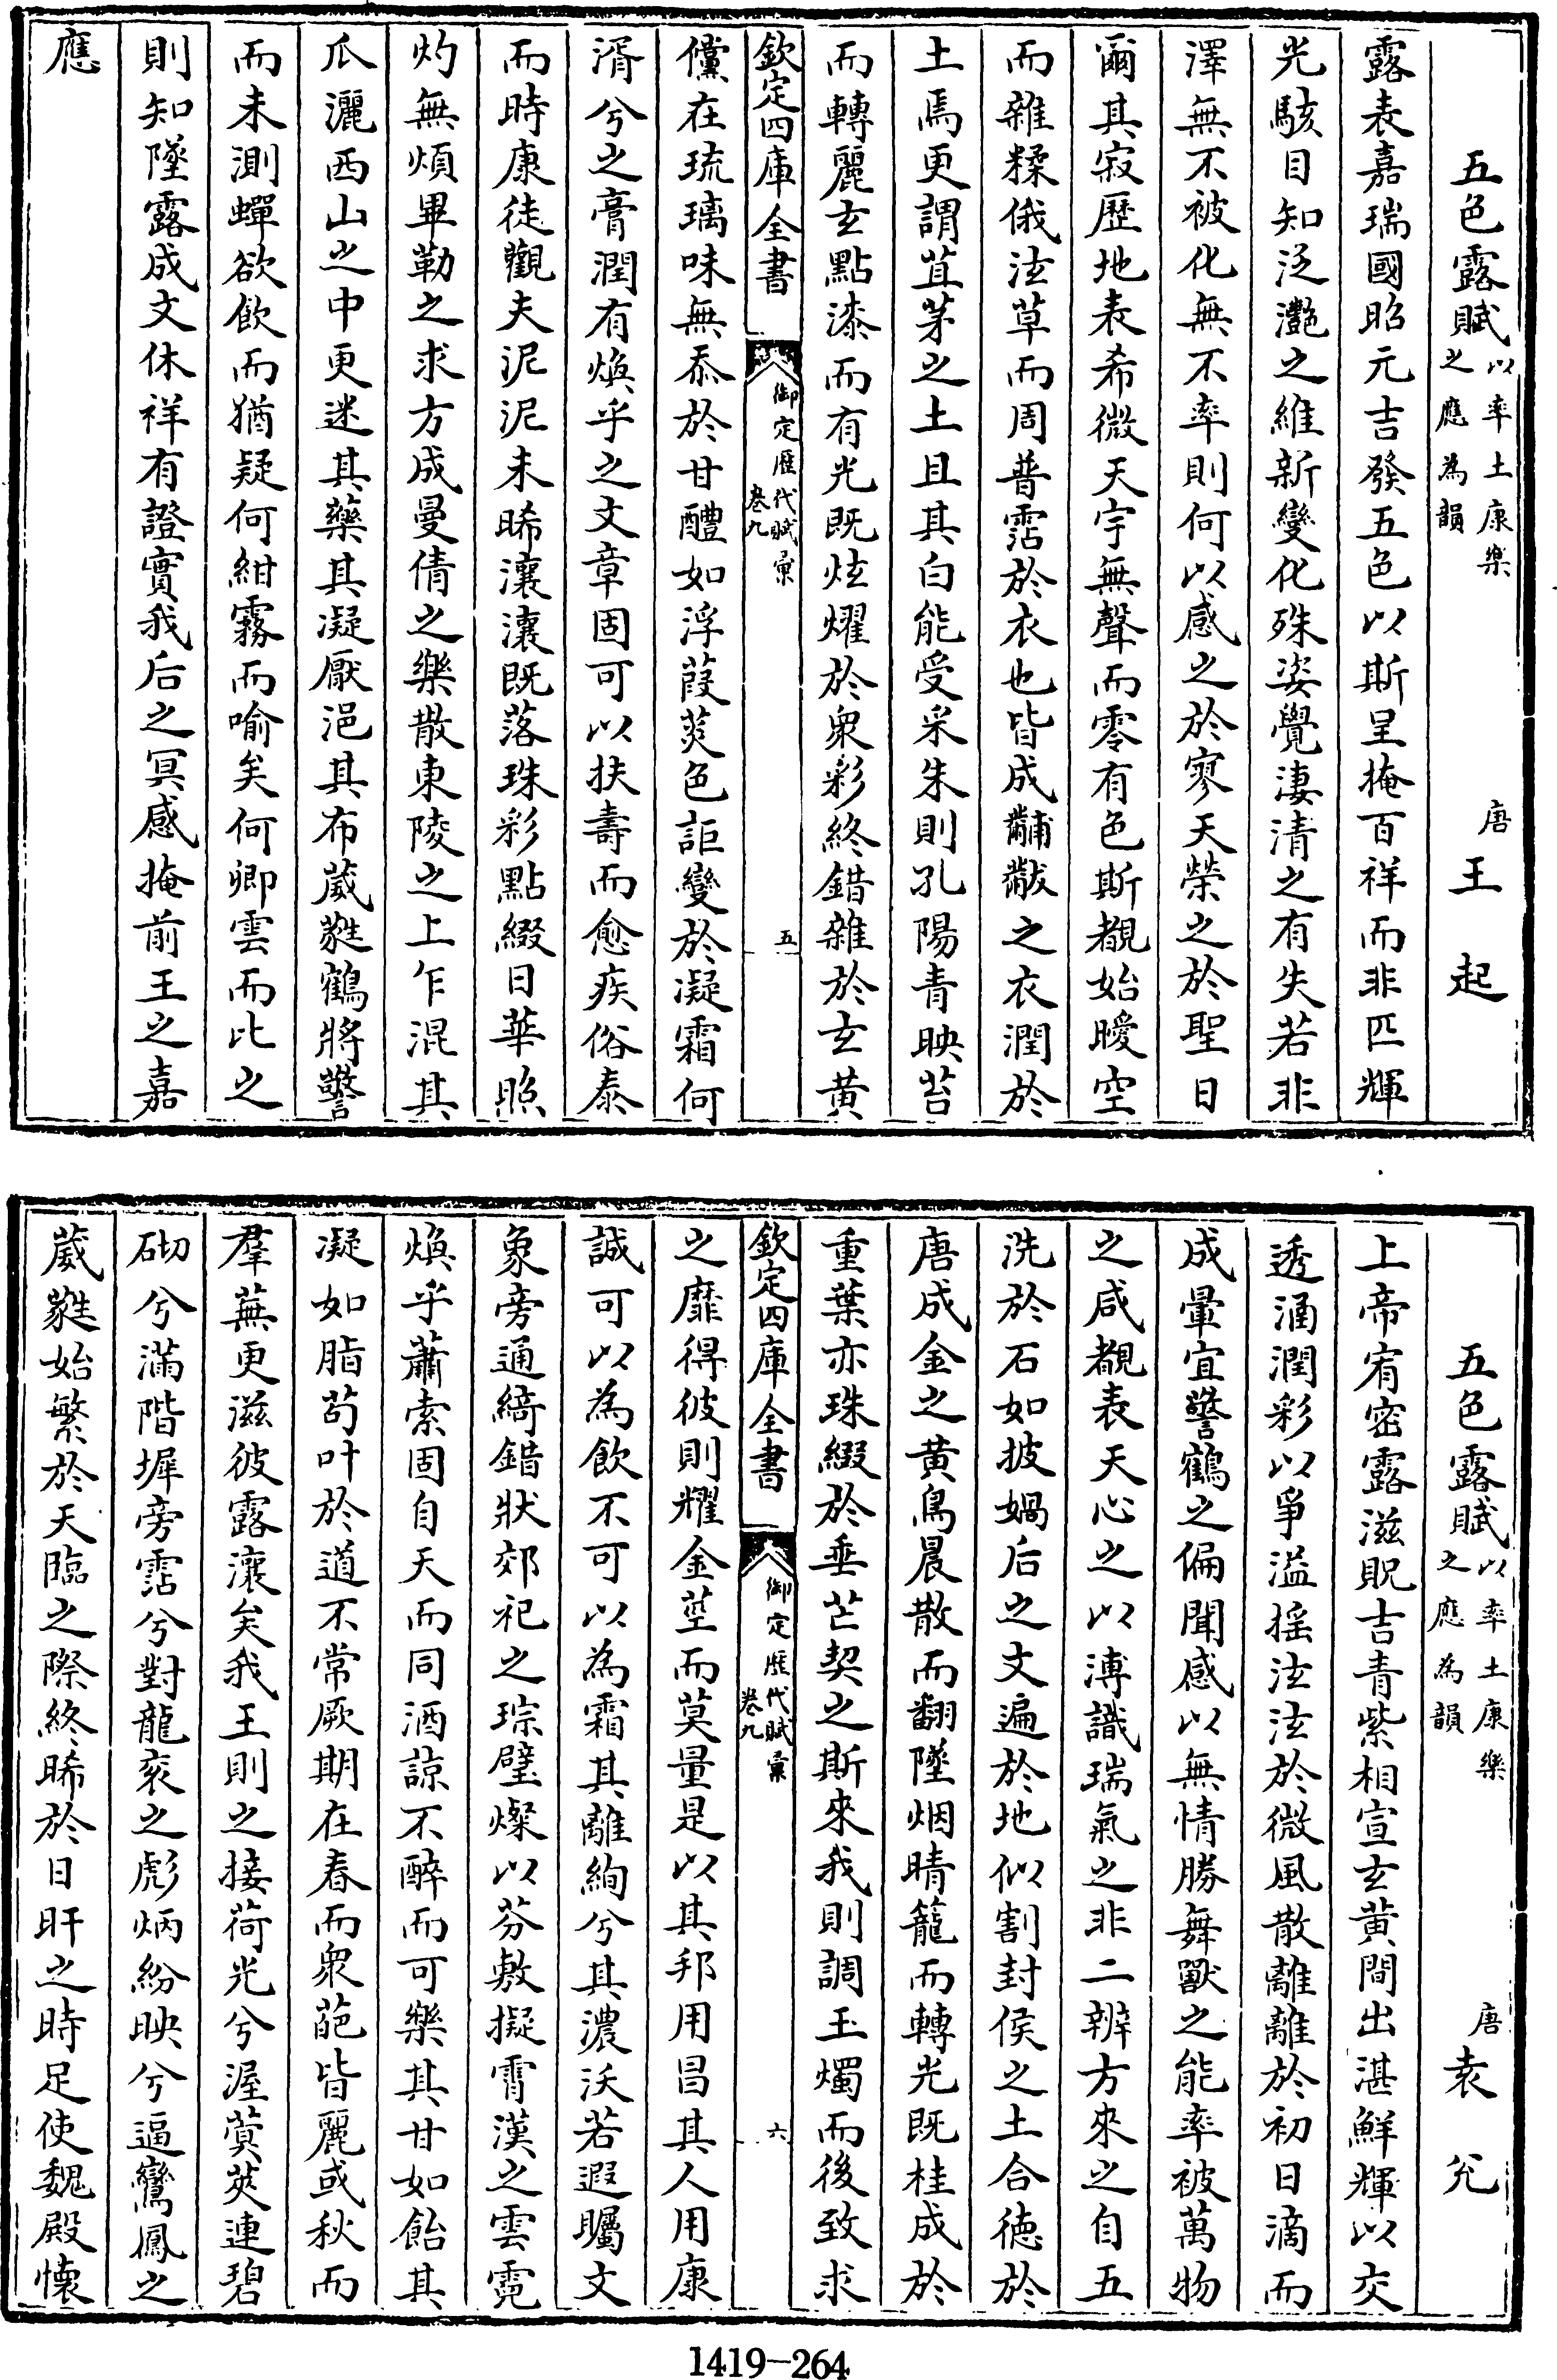 五色露賦以率土康樂之應為韻 唐王起
露表嘉瑞國昭元吉發五色以斯呈掩百祥而非匹輝
光駭目知泛灧之維新變化殊姿覺淒清之有失若非
澤無不被化無不率則何以感之於寥天榮之於聖日
爾其寂歷地表希微天宇無聲而零有色斯覩始曖空
而雜糅俄泫草而周普霑於衣也皆成黼黻之衣潤於
土焉更謂苴茅之土且其白能受采朱則孔陽青映苔
而轉麗玄點漆而有光既炫燿於衆彩終錯雜於玄黃
欽定四庫全書 御定歷代賦彙卷九 五
儻在琉璃味無忝於甘醴如浮葭菼色詎變於凝霜何
湑兮之膏潤有煥乎之文章固可以扶壽而愈疾俗泰
而時康徒觀夫泥泥未晞瀼瀼既落珠彩點綴日華照
灼無煩畢勒之求方成曼倩之樂散東陵之上乍混其
瓜灑西山之中更迷其藥其凝厭浥其布葳蕤鶴將警
而未測蟬欲飲而猶疑何紺霧而喻矣何卿雲而比之
則知墜露成文休祥有證實我后之冥感掩前王之嘉
應
五色露賦以率土康樂之應為韻 唐袁兊
上帝宥密露滋貺吉青紫相宣玄黃間出湛鮮輝以交
透涵潤彩以爭溢搖泫泫於微風散離離於初日滴而
成暈宜警鶴之偏聞感以無情勝舞獸之能率被萬物
之咸覩表天心之以溥識瑞氣之非二辨方來之自五
洗於石如披媧后之文遍於地似割封侯之土合德於
唐成金之黃鳥晨散而翻墜烟晴籠而轉光既桂成於
重葉亦珠綴於垂芒契之斯來我則調玉燭而後致求
欽定四庫全書 御定歷代賦彙卷九 六
之靡得彼則耀金莖而莫量是以其邦用昌其人用康
誠可以為飲不可以為霜其離絢兮其濃沃若遐矚文
象旁通綺錯狀郊祀之琮璧燦以芬敷擬霄漢之雲霓
煥乎蕭索固自天而同酒諒不醉而可樂其甘如飴其
凝如脂苟叶於道不常厥期在春而衆葩皆麗或秋而
羣蕪更滋彼露瀼矣我王則之接荷光兮渥蓂莢連碧
砌兮滿階墀旁霑兮對龍衮之彪炳紛映兮逼鸞鳳之
葳蕤始繁於天臨之際終晞於日旰之時足使魏殿懷
1419-264